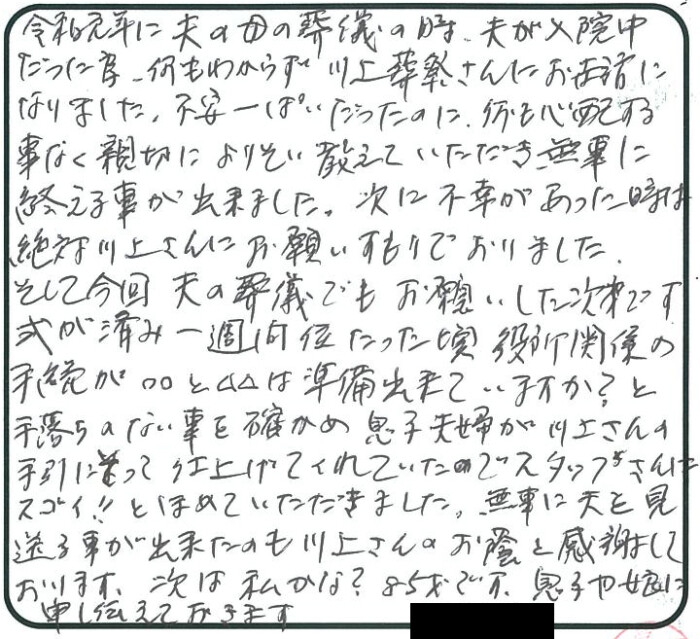 令和元年に夫の母の葬儀の時、夫が入院中
だった為、何もわからず川上葬祭さんにお世話に
なりました。不安一ぱいだったのに、何も心配する
事なく親切によりそい教えていただき無事に
終える事が出来ました。次に不幸があった時は
絶対川上さんにお願いするつもりでおりました。
そして今回夫の葬儀でもお願いした次第です
式が済み一週間位たった頃役所関係の
手続が○○と△△は準備出来ていますか?と
手落ちのない事を確かめ息子夫婦が川上さんの
手引に従って仕上げてくれていたのでスタッフさんに
スゴイ!!とほめていただきました。無事に夫を見
送る事が出来たのも川上さんのお蔭と感謝して
おります。次は私かな?85才です。息子や娘に
申し伝えておきます